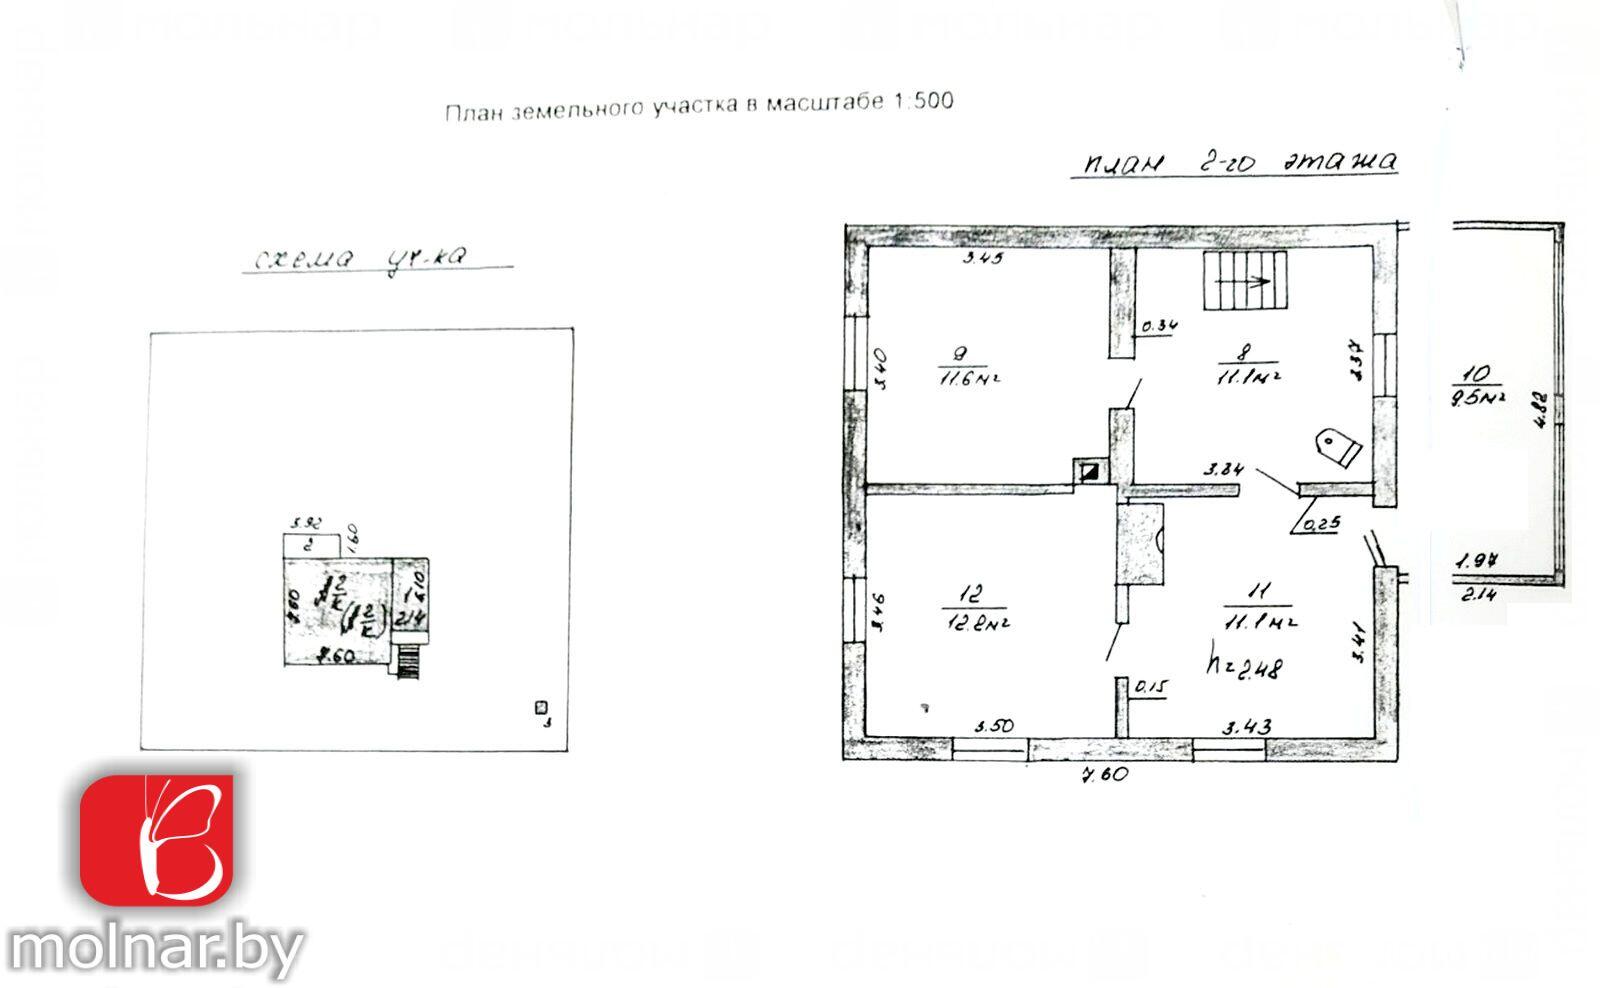 План земельного участка в масштабе 1:500
план 2-го этажа
схема уч-ка
3.45
0.34
9
11.6м²
3.40
8
11.1м²
3.37
10
9.5м²
4.82
3.34
0.25
3.92
2
1.60
7.60
2
К
2
К
1
2.14
7.60
3
1.97
2.14
12
12.2м²
3.46
11
11.1м²
3.41
h=2.48
0.15
3.50
3.43
7.60
molnar.by